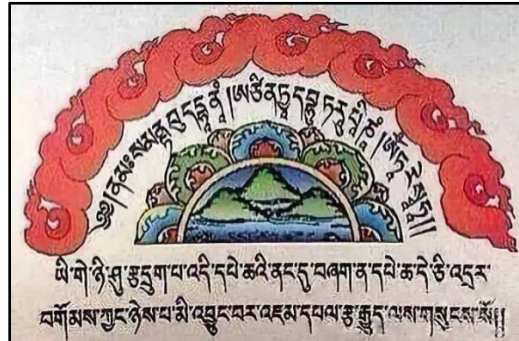 ན་མཿས་མནྟ་བུ་དྡྷཱ་ནཱཾ།
ཡི་གེ་ཉི་ཤུ་རྩ་དྲུག་པ་འདི་དཔེ་ཆའི་ནང་དུ་བཞག་ན་དཔེ་ཆ་དེ་ཅི་འདྲར་
བགོམས་ཀྱང་ཉེས་པ་མི་འབྱུང་བར་འཇམ་དཔལ་རྩ་རྒྱུད་ལས་གསུངས་སོ།།